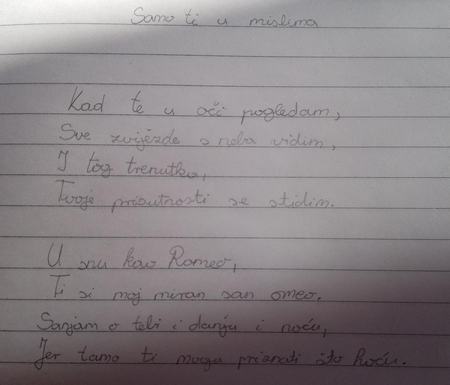 Samo ti u mislima
Kad te u oči pogledam,
Sve zvijezde s neba vidim,
I tog trenutka,
Tvoje prisutnosti se stidim.
U snu kao Romeo,
Ti si moj miran san omeo.
Sanjam o tebi i danju i noću,
Jer tamo ti mogu priznati što hoću.